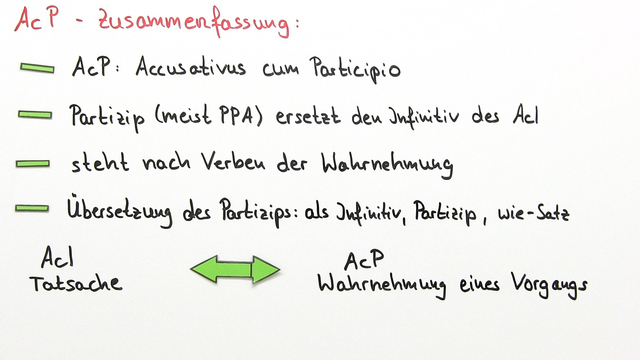 AcP - Zusammenfassung:
AcP: Accusativus cum Participio
Partizip (meist PPA) ersetzt den Infinitiv des AcI
steht nach Verben der Wahrnehmung
Übersetzung des Partizips: als Infinitiv, Partizip, wie-Satz
AcI
Tatsache
AcP
Wahrnehmung eines Vorgangs